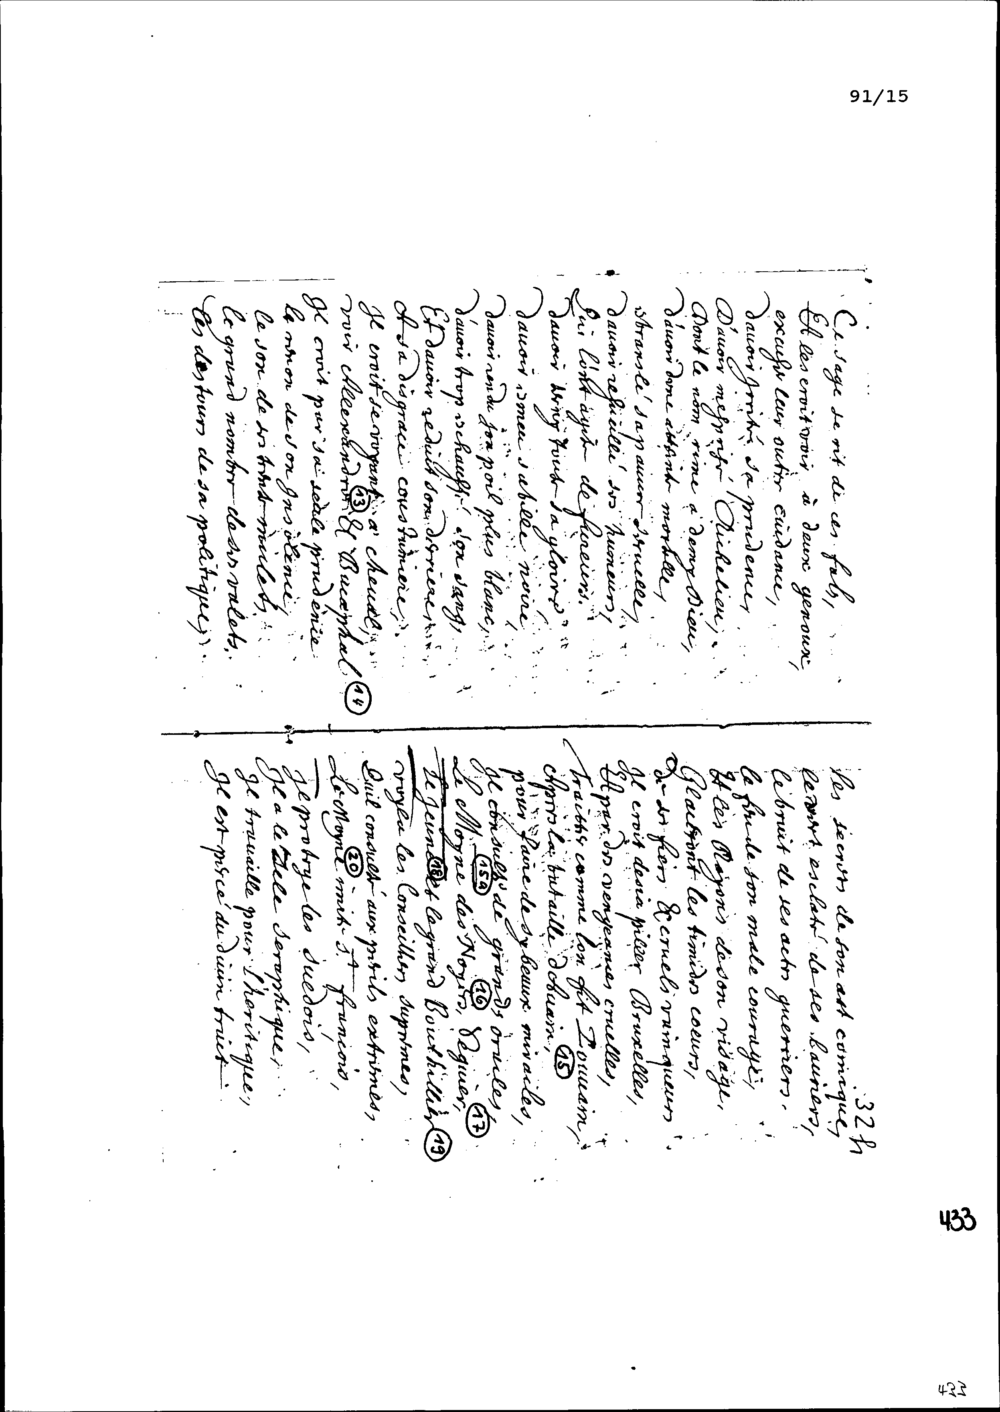 91/15
Ce sage se rit de ces fols,
Et les croit voir à deux genoux,
excuser leur outre cuidance,
davoir irrité sa prudence,
D'avoir mesprisé Richelieu,
dont le nom rime a demy Dieu,
d'avoir donc attaint mortelle,
estranslé sa pauure ceruelle,
dauoir resueillé ses humeurs,
Qui l'ont agité de fureurs.
dauoir terny toute sa gloire
dauoir esmeu sa bille noire
dauoir rendu son poil plus blanc,
d'auoir trop eschauffé son sang,
Et dauoir reduit son derriere,
A sa disgrace coustumiere,
Il croit se voyant a cheual,
voir Allexandre 13 & Bucephal 14
Il croit par sa seule prudence
le renon de son Insolence,
le son de ses trente mulets,
le grand nombre de ses valets.
les destours de sa politique,
32 h
les secrets de son art comique,
le vert esclat de ses lauriers,
le bruit de ses actes guerriers.
le feu de son male courage,
Et les Rayons de son visage,
Glaceront les timides coeurs,
de ces fiers & cruels vainqueurs
Il croit desia piller Bruxelles,
Et par des vengeances cruelles,
traitter comme l'on fit Louuain,
Apres la bataille d'Auain, 15
pour faire de sy beaux miracles,
Il consulte de grands oracles,
15A 16 17
Le Moyne des Noyers, Seguier,
le jeune 18 et le grand Bouthillier 19
voyla les Conseillers supremes,
Quil consulte aux perils extremes,
Le Moyne 20 mit St françois,
Il protege les suedois,
Il a le Zele seraphique,
Il trauaille pour l'heritique,
Il est percé du diuin traict
433
433